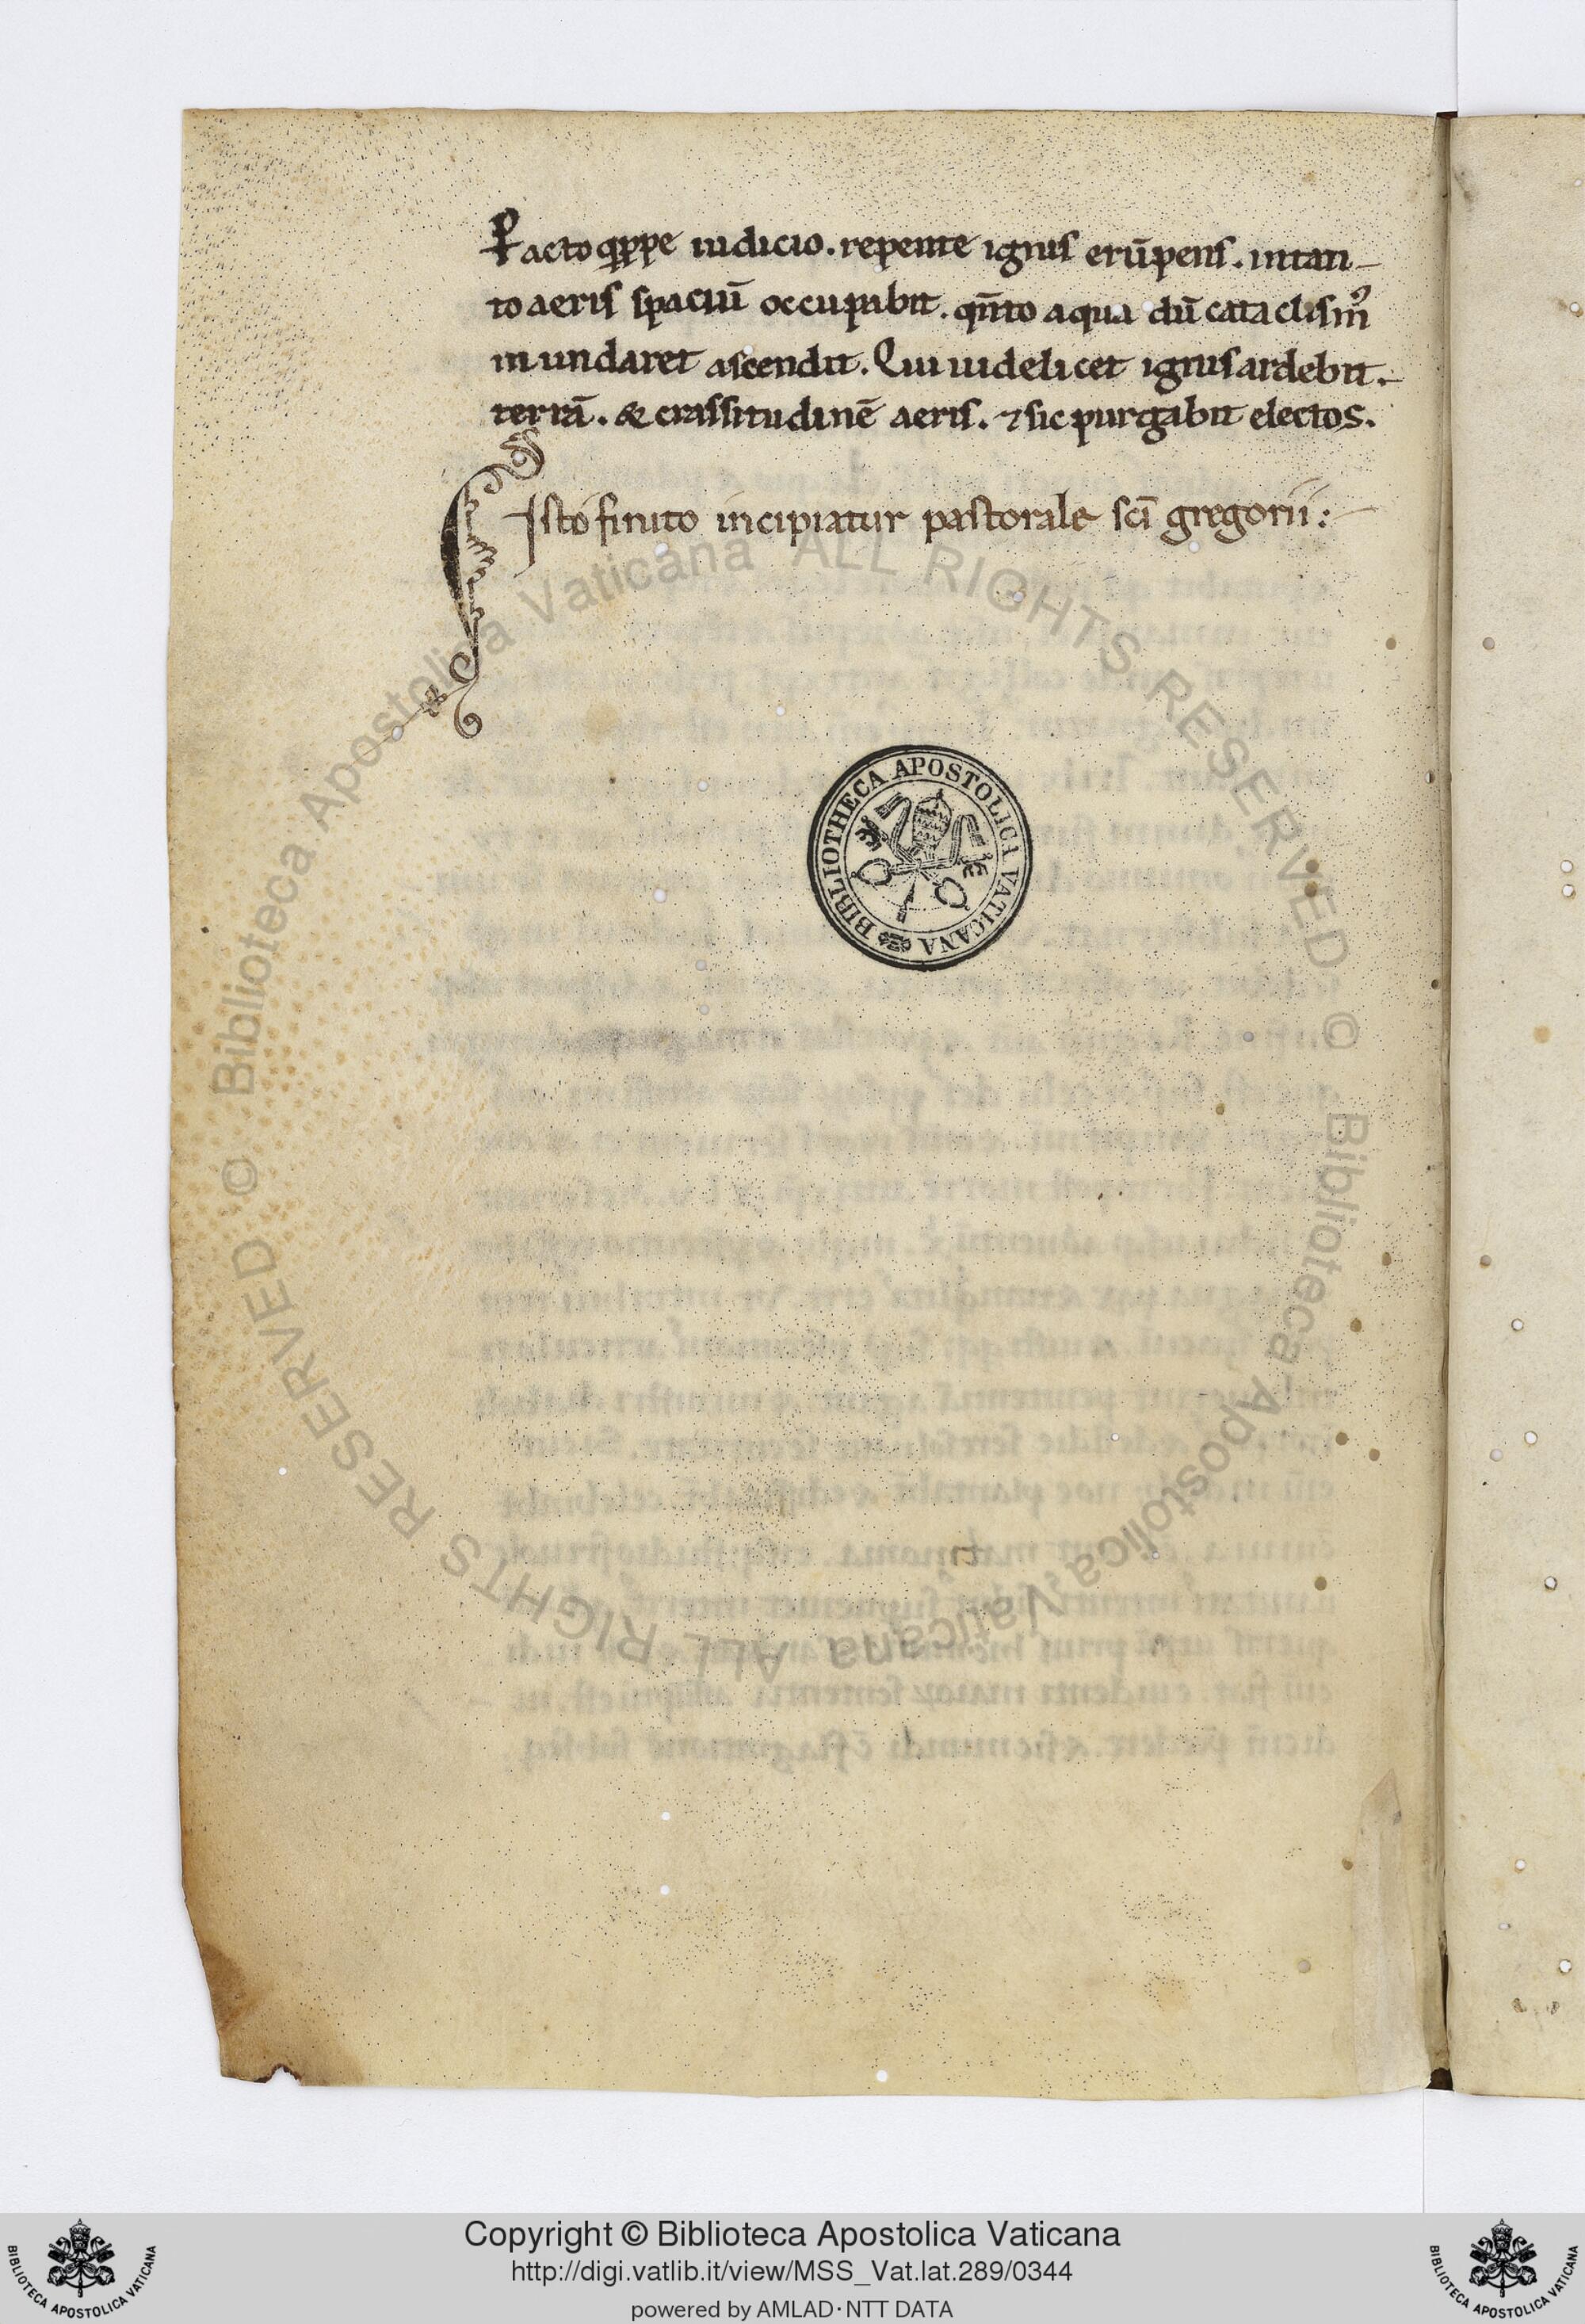 Facto q̄ppe iudicio. repente ignis erūpens. intan-
to aeris spaciū occupabit. qn̄to aqua dū cataclism̄ꝰ
inundaret ascendit. Qui uidelicet ignis ardebit.
terrā. & crassitudinē aeris. ⁊ sic purgabit electos.
Isto finito incipiatur pastorale sc̄i gregorii:
BIBLIOTHECA APOSTOLICA VATICANA
© Biblioteca Apostolica Vaticana ALL RIGHTS RESERVED
© Biblioteca Apostolica Vaticana ALL RIGHTS RESERVED
Copyright © Biblioteca Apostolica Vaticana
http://digi.vatlib.it/view/MSS_Vat.lat.289/0344
powered by AMLAD·NTT DATA
BIBLIOTECA APOSTOLICA VATICANA
BIBLIOTECA APOSTOLICA VATICANA